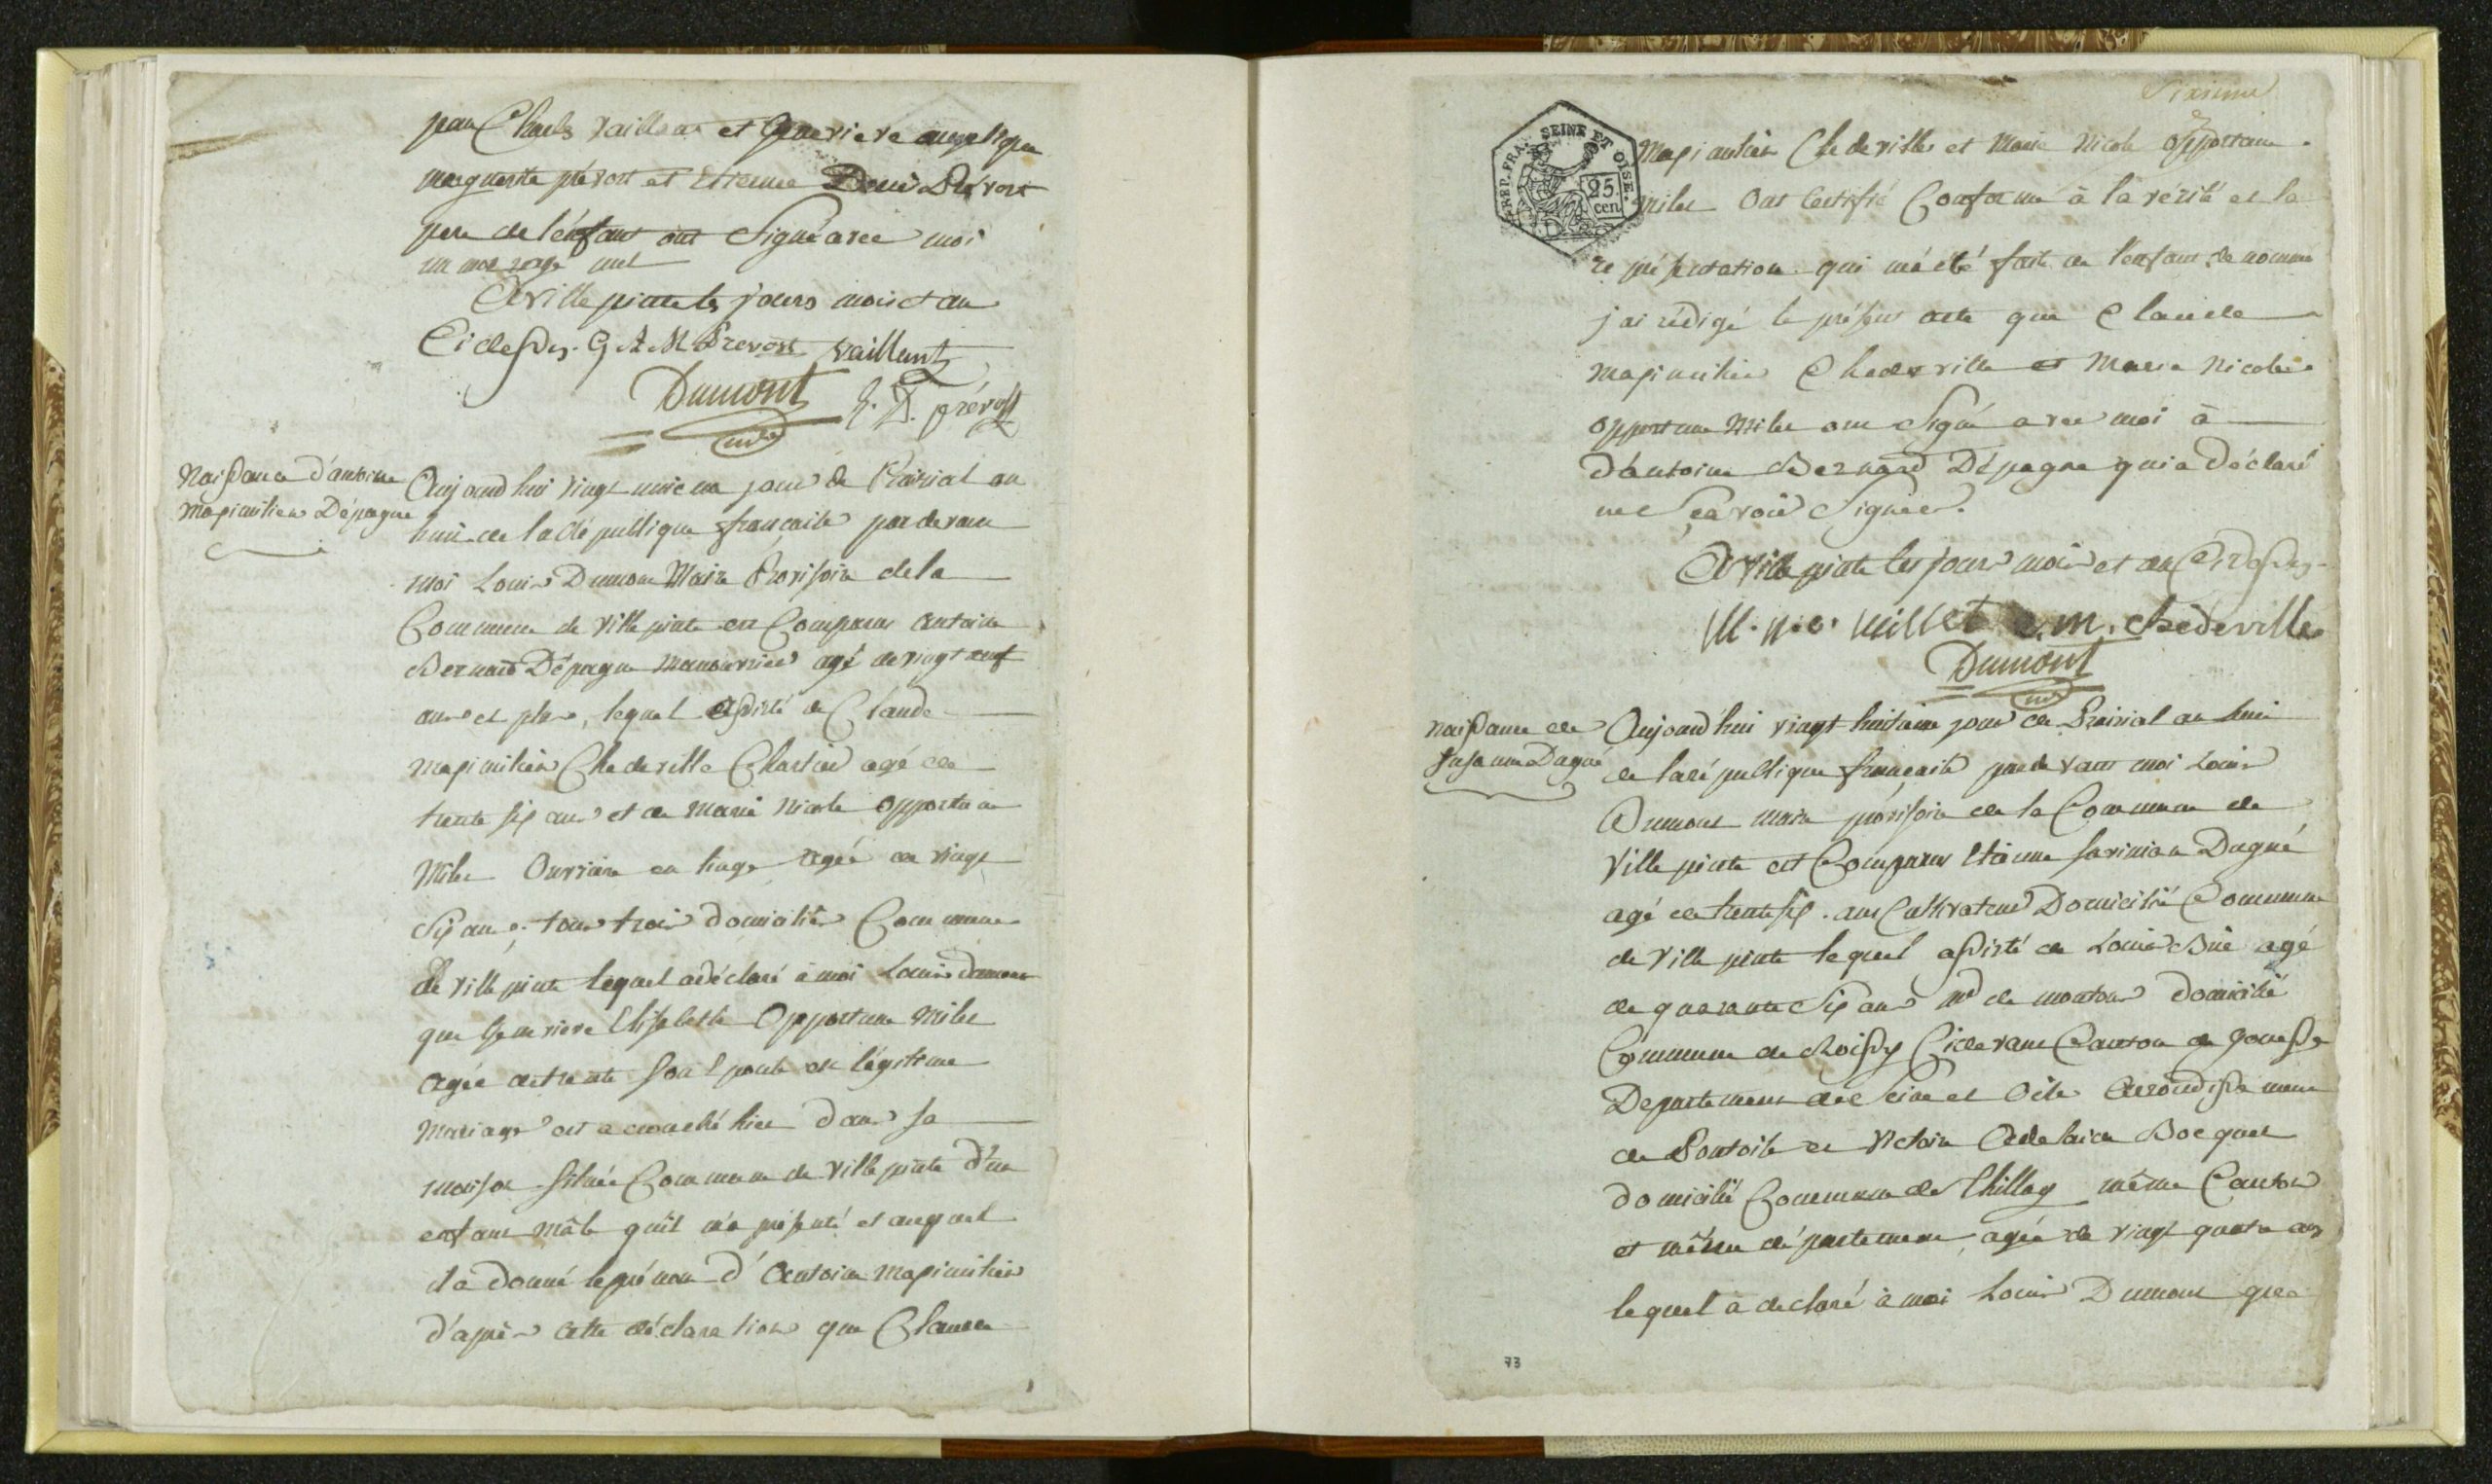 jean Charles Vaillant et Genevieve angelique
marguerite prévost et Etienne Denis Prévost
pere de l'enfant ont Signé avec moi
un mot rayé nul
A Villepinte les jours mois et an
Ci dessus. G. A. M. Prevost vaillant
Dumont E. D. prévost
Naissance d'antoine
Maximilien Dépagne
Aujourd'hui vingt unieme jour de Prairial an
huit de la République française par devant
moi Louis Dumont Maire Provisoire de la
Commune de Villepinte est Comparus antoine
Bernard Dépagne Manouvrier agé de vingt neuf
ans et plus, lequel assisté de Claude
maximilien Chedeville Chartier agé de
trente six ans et de Marie Nicole opportune
Milet Ouvriere en linge agée de vingt
Six ans, tous trois domiciliés Commune
de Villepinte lequel a déclaré à moi Louis dumont
que Genevieve Elisabeth Opportune Milet
agée de trente son Epouse en légitime
Mariage est accouché hier dans sa
maison située Commune de Villepinte d'un
enfant mâle qu'il m'a présenté et auquel
il a donné le prénom d'Antoine Maximilien
d'après cette déclaration que Claude
Sixieme
Maximilien Chedeville et Marie Nicole Opportune
Milet Ont Certifié Conforme à la vérité et la
représentation qui m'a été faite de l'enfant denommé
j'ai rédigé le présent acte que Claude
Maximilien Chedeville et Marie Nicole
opportune Milet ont Signé avec moi à
d'antoine Bernard Dépagne qui a Déclaré
ne Sçavoir Signer.
A Villepinte les jours mois et an Ci dessus
M. n. o. millet c. m. chèdeville
Dumont
REP. FRA. SEINE ET OISE.
25 cen
Naissance de
Susanne Dagué
Aujourd'hui vingt huitieme jour de Prairial an huit
de la république française par devant moi Louis
Dumont maire provisoire de la Commune de
Villepinte est Comparus Etienne savinien Dagué
agé de trente six ans Cultivateur Domicilié Commune
de Villepinte lequel assisté de Louis Bué agé
de quarante Six ans Md de moutons domicilié
Commune de Roissy Cidevant Canton de gonesse
Departement de Seine et Oise Arrondissement
de Pontoise et Victoire Adelaide Bocquet
domicilié Commune de Thillay même Canton
et même département, agée de vingt quatre ans
lequel a declaré à moi Louis Dumont que
73